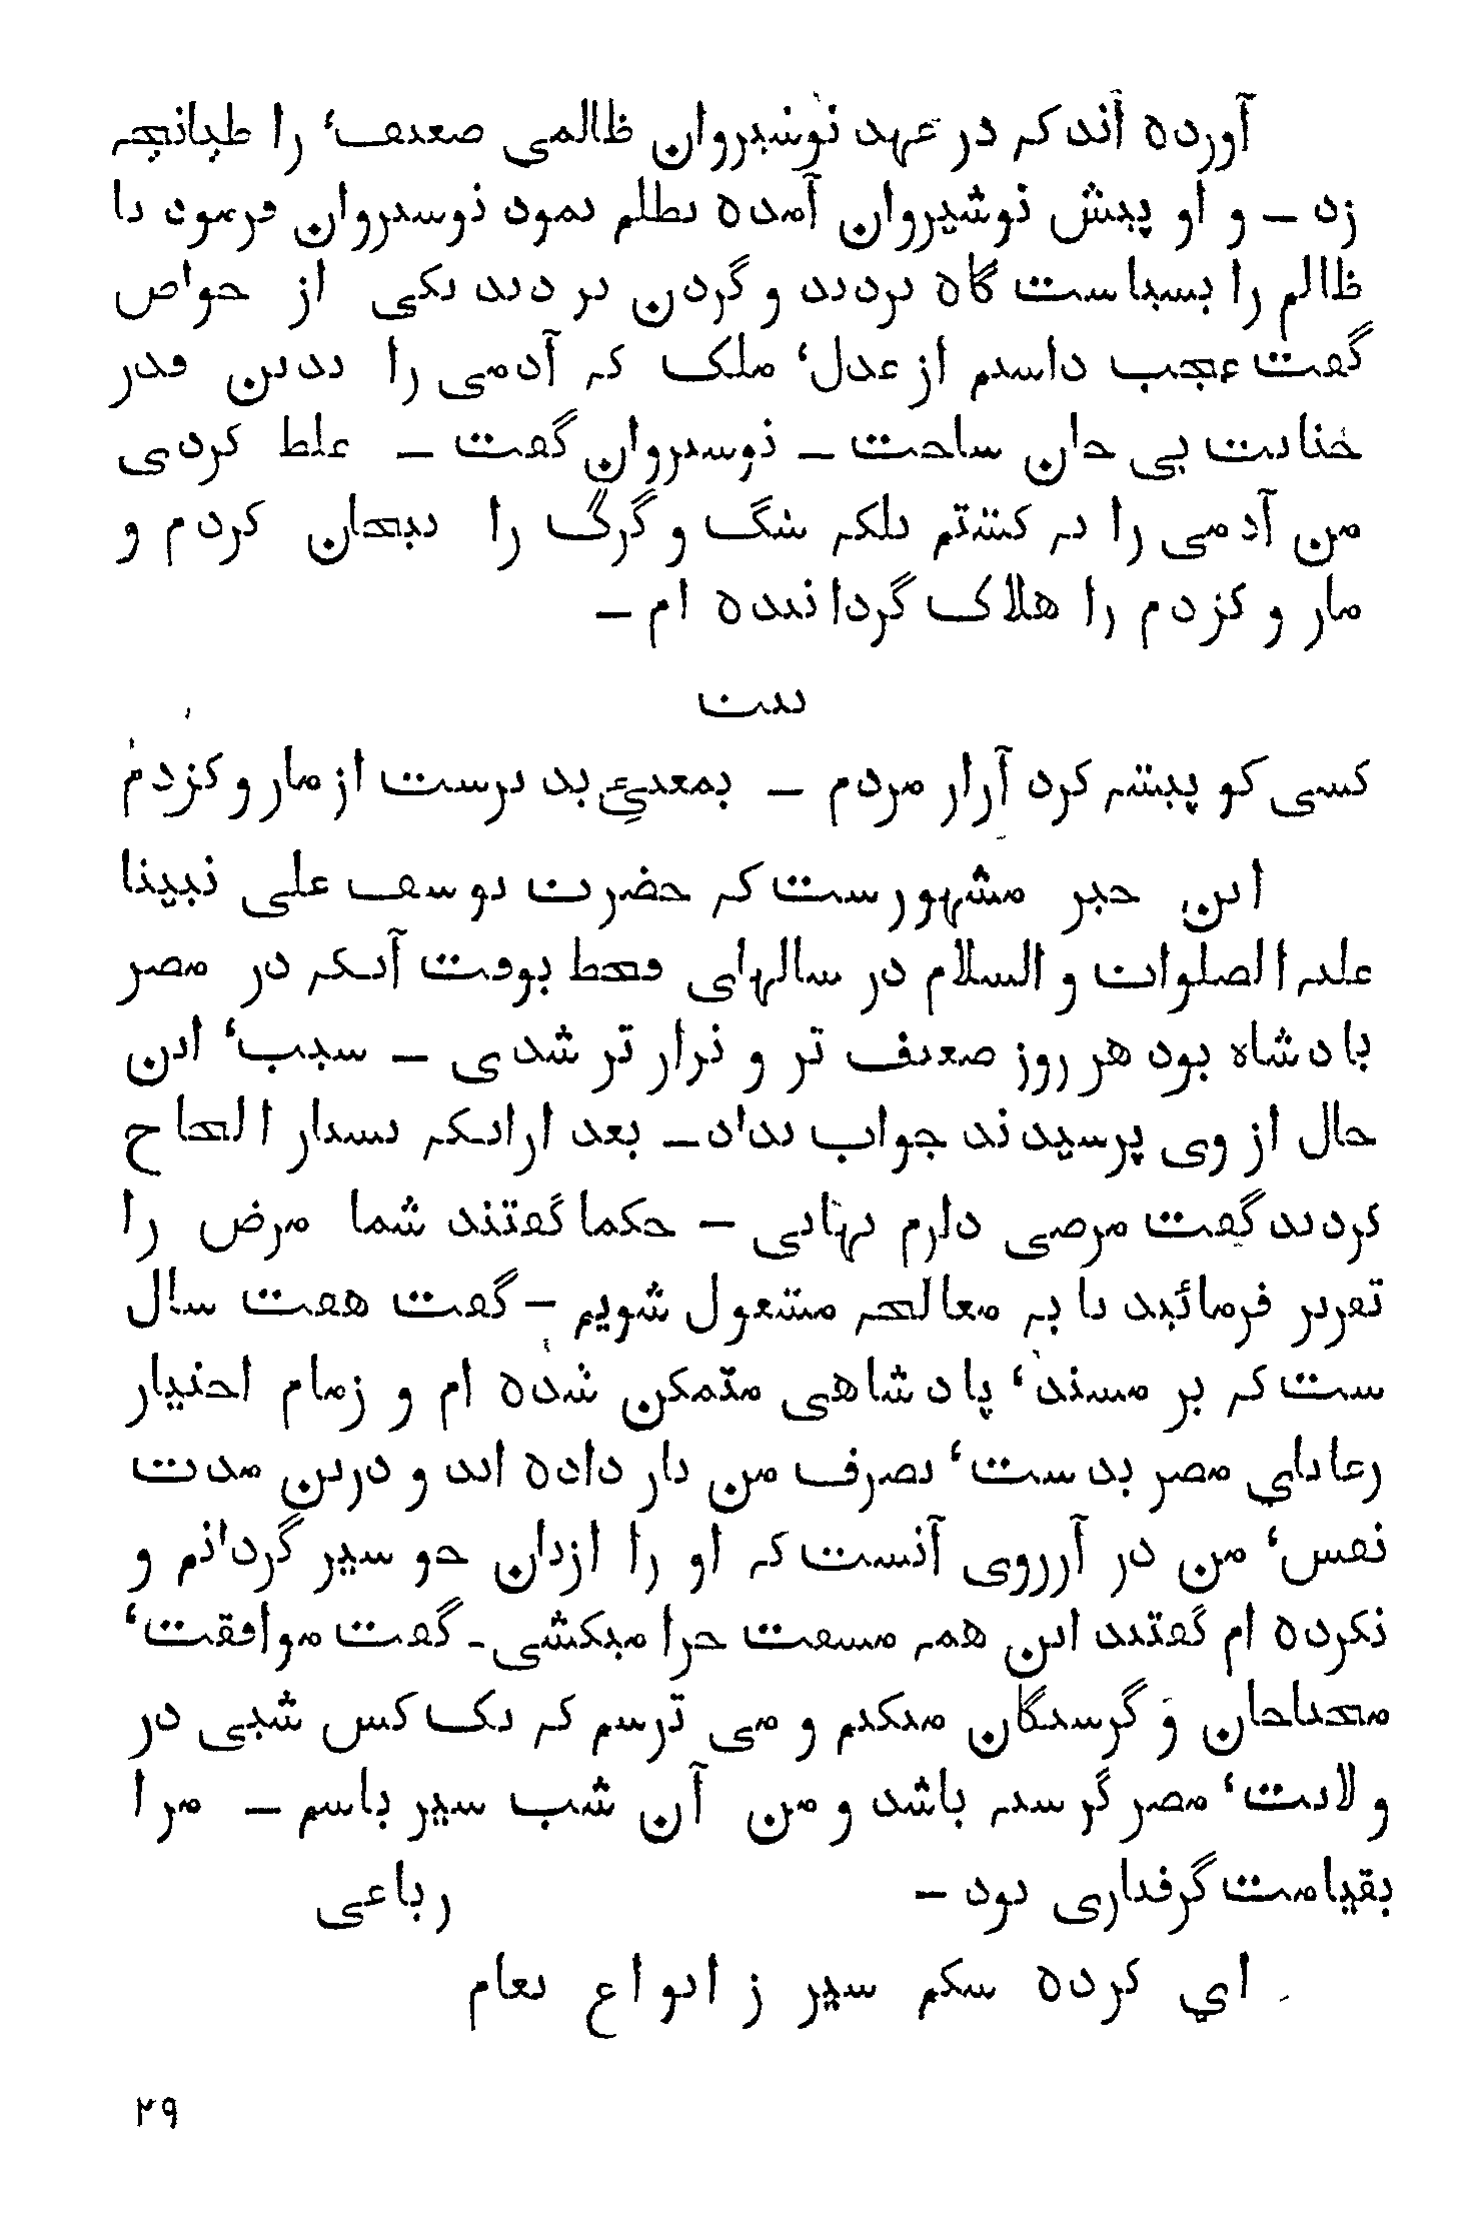 آورده اند که در عهد نوشیروان ظالمی ضعیف‘ را طپانچه
زد ـ و او پیش نوشیروان آمده تظلم نمود نوشیروان فرمود تا
ظالم را بسیاست گاه بردند و گردن بر دند یکی از خواص
گفت عجب داشتم از عدل‘ ملک که آدمی را بدین قدر
خیانت بی جان ساخت ـ نوشیروان گفت ـ غلط کردی
من آدمی را نه کشتم بلکه سگ و گرگ را بیجان کردم و
مار و کژدم را هلاک گردانیده ام ـ
بیت
کسی کو پیشه کرد آزار مردم ـ بمعنیء بد ترست از مار و کژدم
این خبر مشهور ست که حضرت یوسف علی نبینا
علیه الصلوات و السلام در سالهای قحط بوقت آنکه در مصر
بادشاه بود هر روز ضعیف تر و نزار تر شدی ـ سبب‘ این
حال از وی پرسیدند جواب نداد ـ بعد ازانکه بسیار الحاح
کردند گفت مرضی دارم نهانی ـ حکما گفتند شما مرض را
تقریر فرمائید تا به معالجه مشغول شویم ـ گفت هفت سال
ست که بر مسند‘ پادشاهی متمکن شده ام و زمام اختیار
رعایای مصر بدست‘ تصرف من باز داده اند و درین مدت
نفس‘ من در آرزوی آنست که او را ازنان جو سیر گردانم و
نکرده ام گفتند این همه مشقت چرا میکشی ـ گفت موافقت‘
محتاجان و گرسنگان میکنم و می ترسم که یک کس شبی در
ولایت‘ مصر گرسنه باشد و من آن شب سیر باشم ـ مرا
بقیامت گرفتاری بود ـ رباعی
ای کرده شکم سیر ز انواع نعام
۲۹